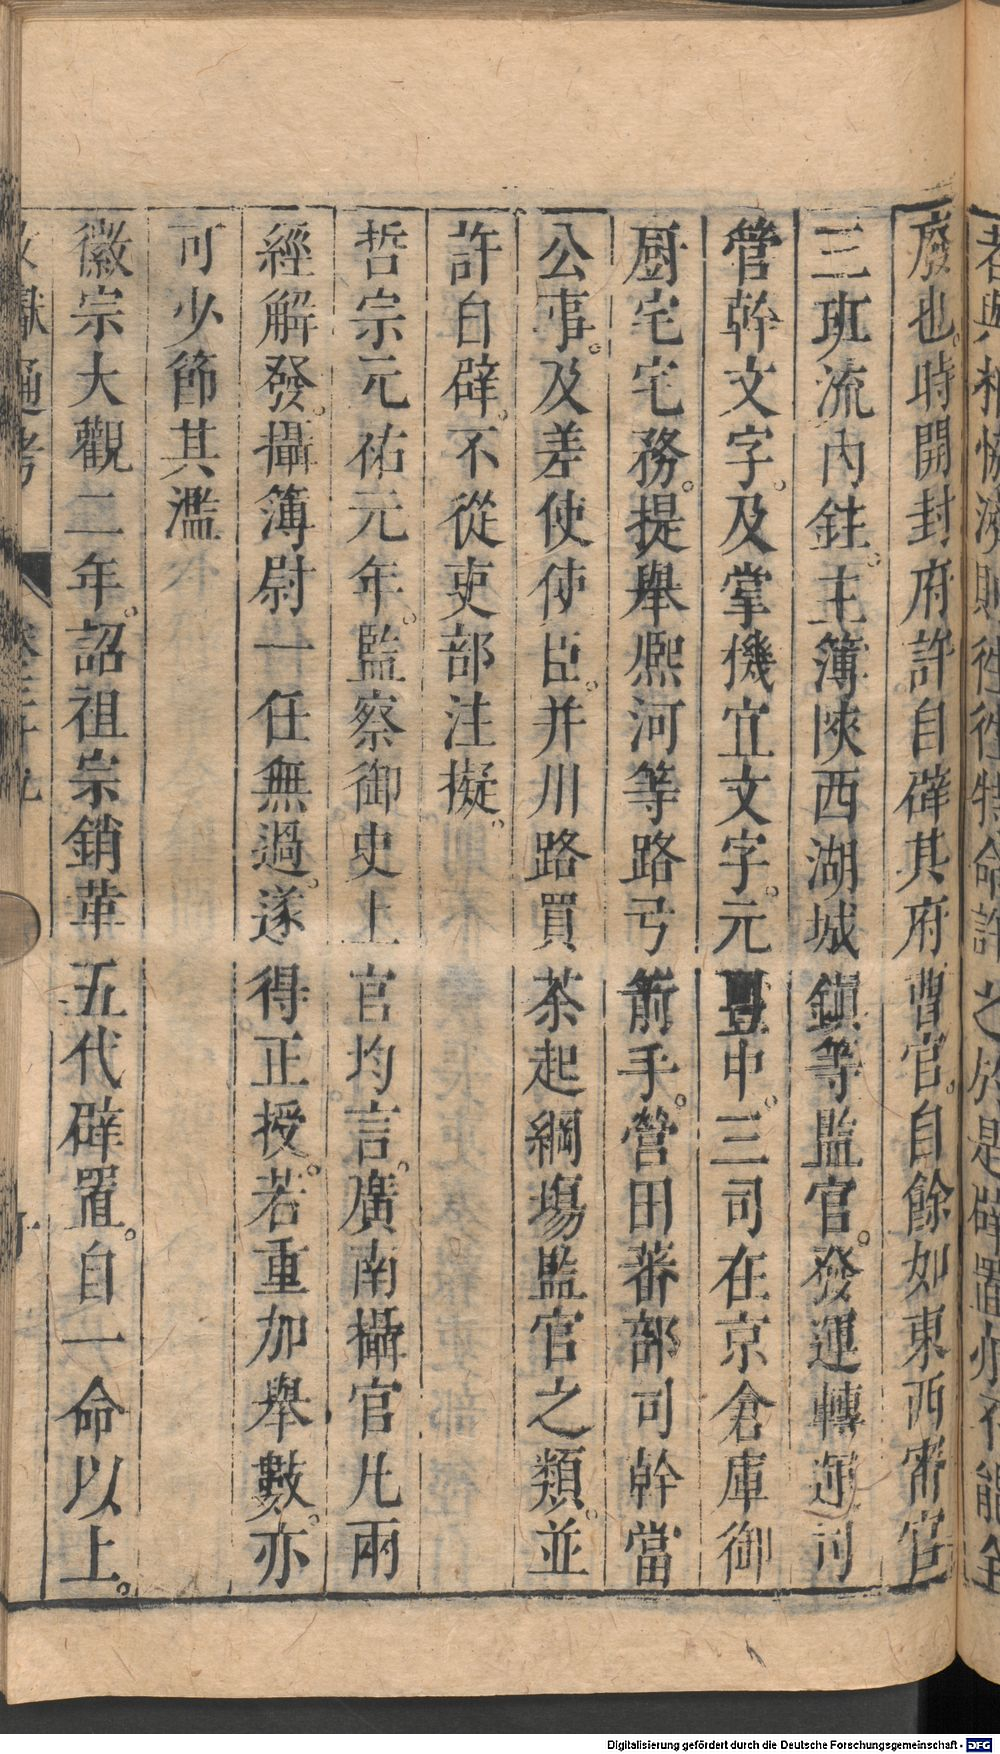 廢也。時開封府許自辟其府曹官。自餘如東西審官
三班流內銓。主簿陝西湖城鎮等監官。發運轉運司
管幹文字。及掌機宜文字。元豐中。三司在京倉庫御
厨宅宅務。提舉熈河等路弓箭手。營田蕃部司幹當
公事。及差使使臣。并川路買茶起綱場監官之類。並
許自辟。不從吏部注擬。
哲宗元祐元年。監察御史上官均言。廣南攝官凡兩
經解發。攝簿尉一任無過。遂得正授。若重加舉數。亦
可少節其濫
徽宗大觀二年。詔祖宗銷革五代辟置。自一命以上。
獻通考
Digitalisierung gefördert durch die Deutsche Forschungsgemeinschaft - DFG